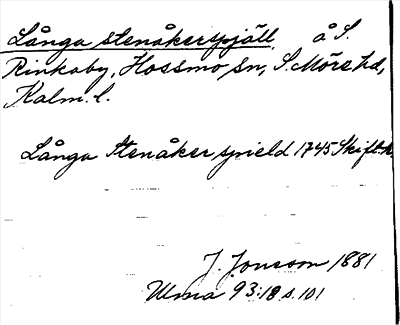 Långa stenåkerspjäll, å S.
Rinkaby, Hossmo sn, S. Möre hd,
Kalm. l.
Långa Stenåker spield 1745 Skift.k.
J. Jonsson 1881
Ulma 93:18 s. 101